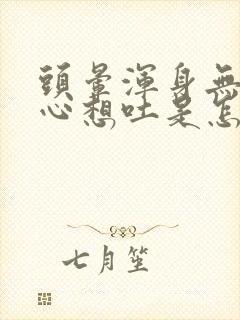 頭暈渾身無
心想吐是怎
七月笙